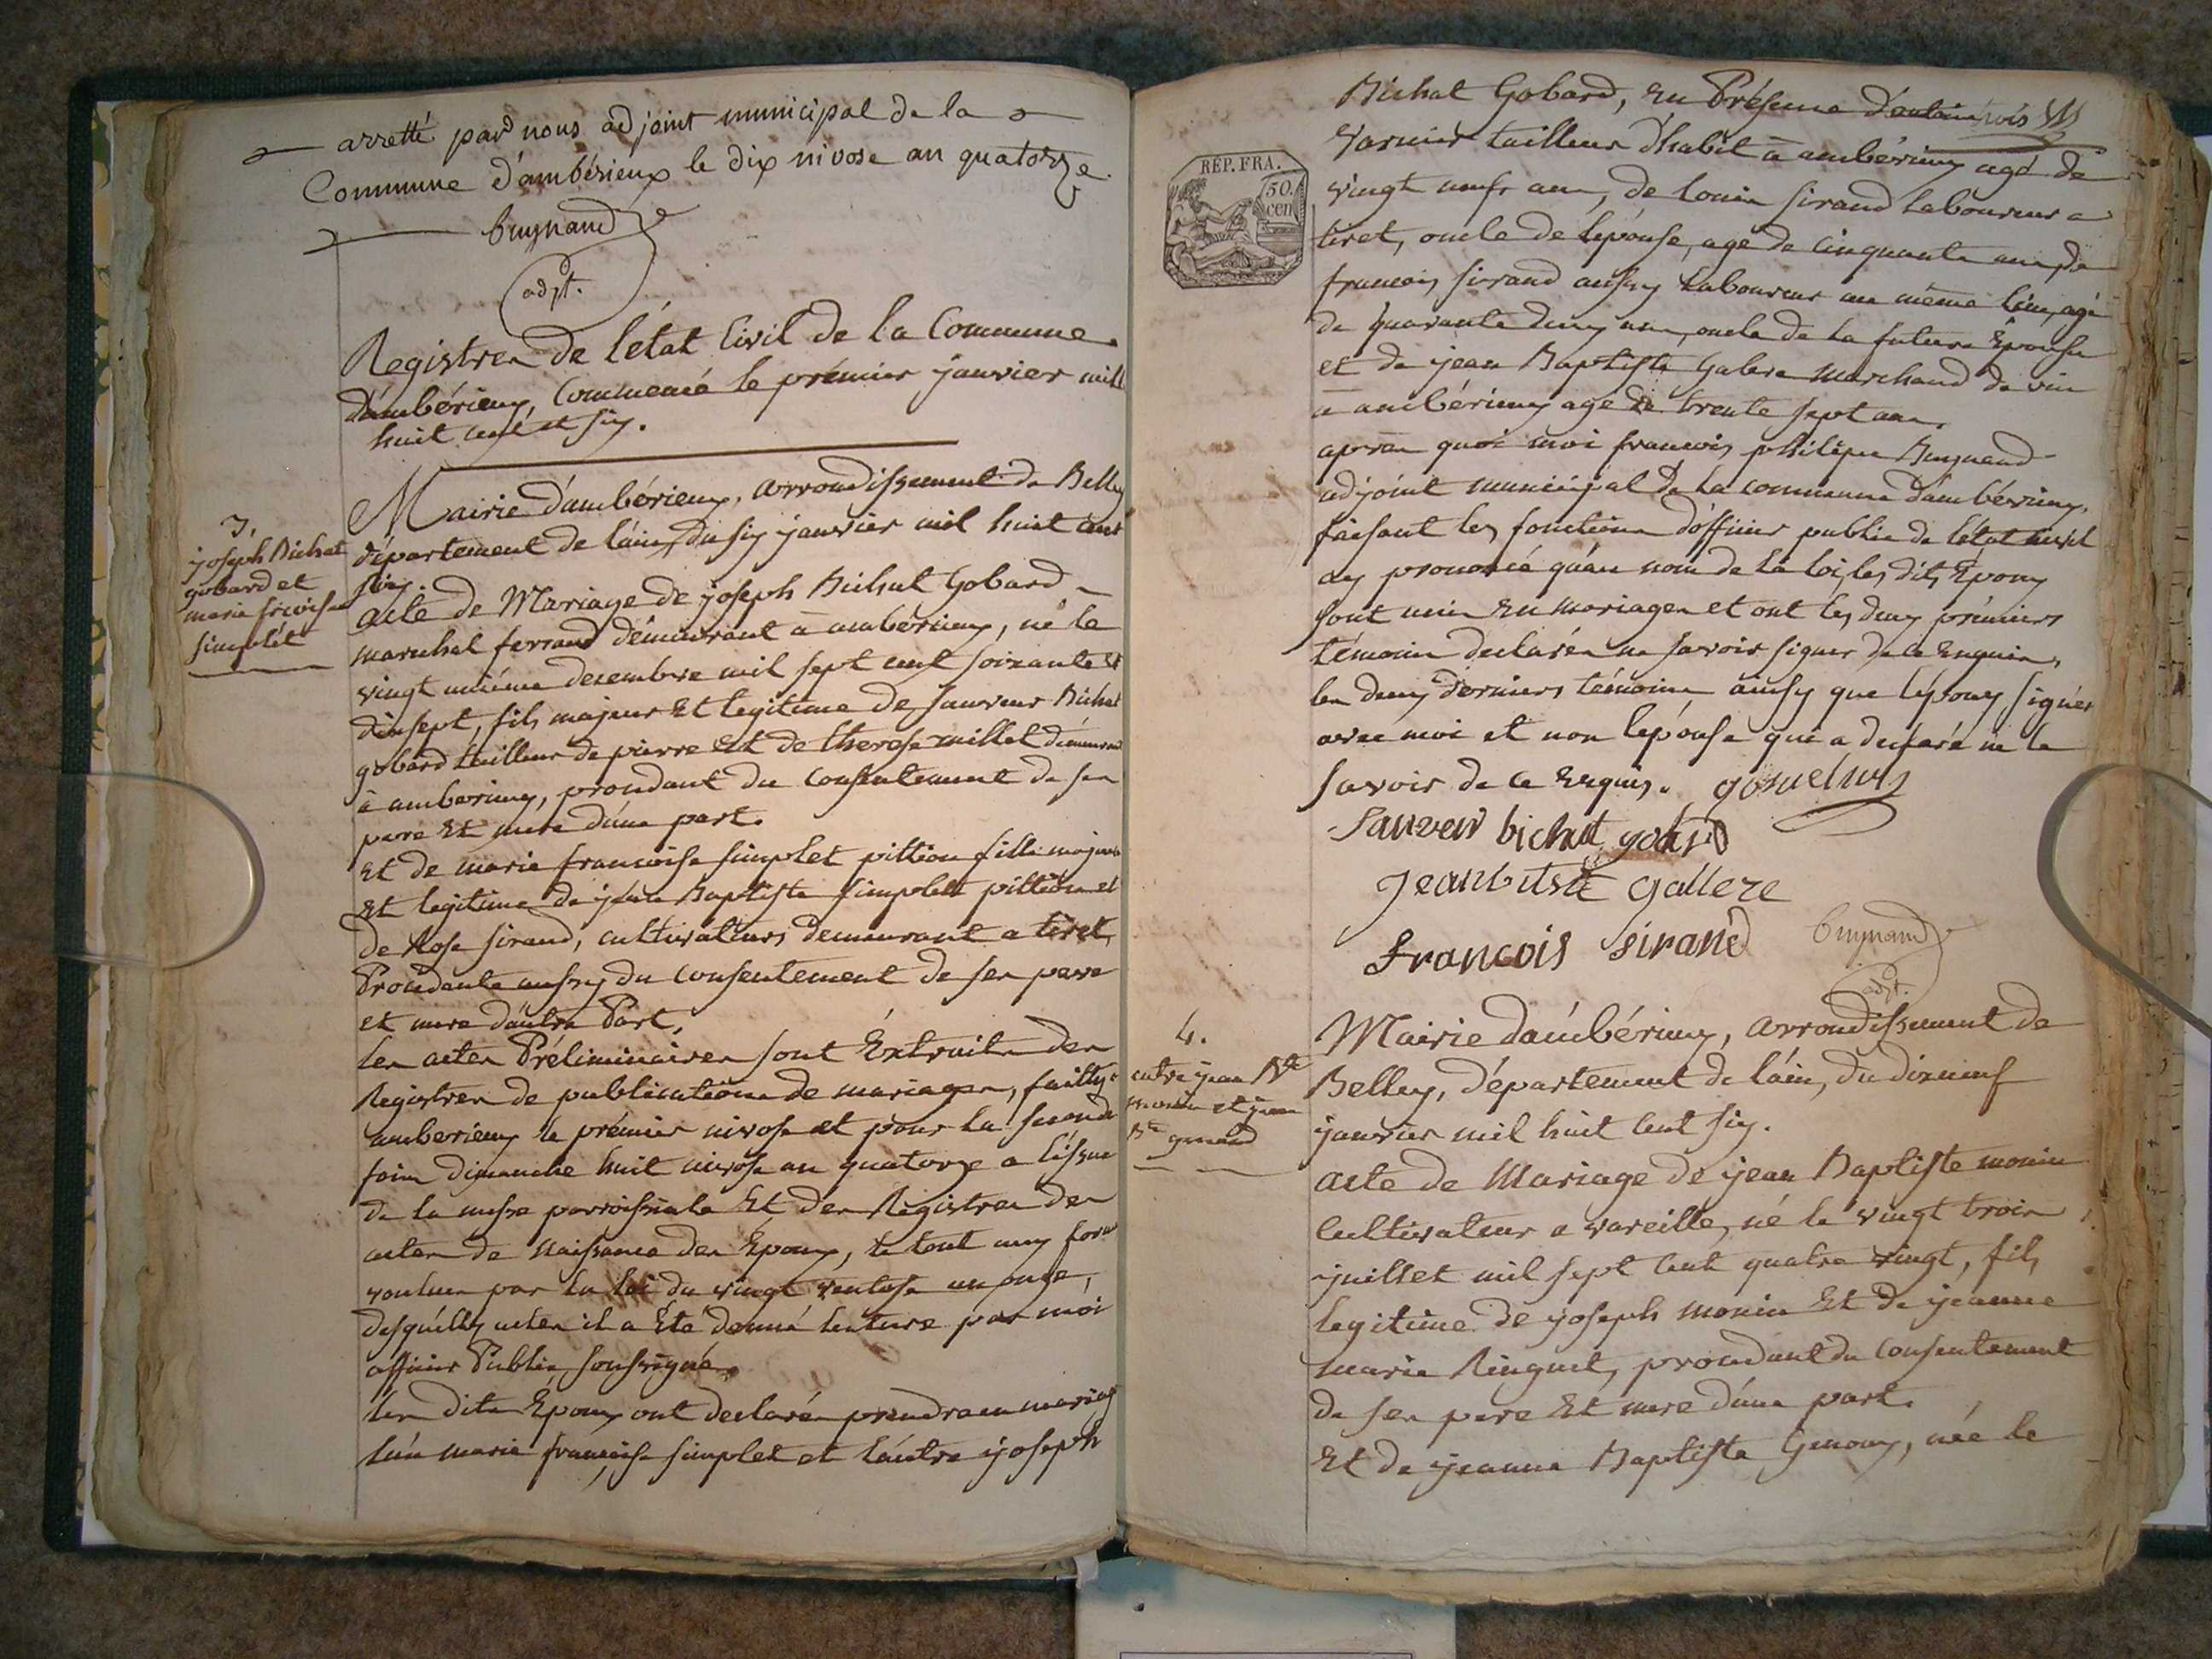 arretté par nous adjoint municipal de la
Commune d'ambérieux le dix nivose an quatorze.
Bugnand
adjt.
Registres de l'état Civil de la Commune
d'ambérieux, Commencé le prémier janvier mill
huit cent et six.
Mairie d'ambérieux, arrondissement de Belley
département de l'ain, du six janvier mil huit cent
six.
3.
joseph Bichat
gobard et
marie
simplet
acte de Mariage de joseph Bichat Gobard
marechal ferrand démeurant à ambérieux, né le
vingt unième decembre mil sept cent soixante et
dixsept, fils majeur Et legitime de sauveur Bichat
gobard tailleur de pierre Et de therese millet démeurant
à amberieux, procedant du consentement de ses
pere Et mere d'une part.
Et de marie francoise simplet pittion fille majeure
Et legitime de jean Baptiste simplet pittion et
de Rose sirand, cultivateurs demeurant a tiret,
Procedante aussy du consentement de ses pere
et mere d'autre Part.
les actes Préliminaires sont Extraits des
Registres de publications de mariages, faitte a
amberieux le prémier nivose et pour la seconde
fois dimanche huit nivose an quatorze a l'issue
de la messe parroissiale Et des Registres des
actes de Naissance des Epoux, le tout aux formes
voulues par la loi du vingt ventose an onze,
desquelles actes il a Eté donné lecture par moi
officier Public soussigné.
les dits Epoux ont declarés prendre en mariage
l'un marie francoise simplet et l'autre joseph
Bichat Gobard, En Présence
Varnier tailleur d'habit à ambérieux agé de
vingt neuf ans, de louis sirand Laboureur a
tiret, oncle de l'épouse, age de cinquante ans, de
francois sirand aussy Laboureur au même lieu, agé
de quarante deux ans, oncle de la future Epouse
et de jean Baptiste Galere marchand de vin
à ambérieux age de trente sept ans.
après quoi moi francois philipe Bugnand
adjoint municipal de la commune d'ambérieux,
faisant les fonctions d'officier public de l'état civil
ay prononcé qu'au nom de la loi, les dits Epoux
sont unis En mariage et ont les deux prémiers
témoins declarés ne savoir signer de ce Enquis,
les deux derniers témoins ainsy que l'époux signés
avec moi et non l'épouse qui a declaré ne le
savoir de ce Enquis.
Sauveur bichat gobard
Jean bitste Gallere
francois sirand
Bugnand
adjt.
4.
entre jean Bte
monin et jeanne
Bte
Mairie d'ambérieux, arrondissement de
Belley, département de l'ain, du dixneuf
janvier mil huit cent six.
acte de Mariage de jean Baptiste monin
Cultivateur a vareille, né le vingt trois
juillet mil sept cent quatre vingt, fils
legitime de joseph monin Et de jeanne
marie Ringuet, procedant du consentement
de ses pere Et mere d'une part.
Et de jeanne Baptiste Genoux, née le
RÉP. FRA.
50.
cen